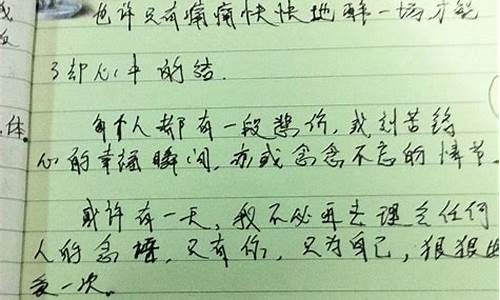 也许只有痛痛快快地醉一场才能
了却心中的结.
每个人都有一段悲伤,或刻苦铭
心的幸福瞬间,亦或念念不忘的情节.
或许有一天,我不必再去理会任何
人的念,只有你,只为自己,狠狠
爱一次.
体.